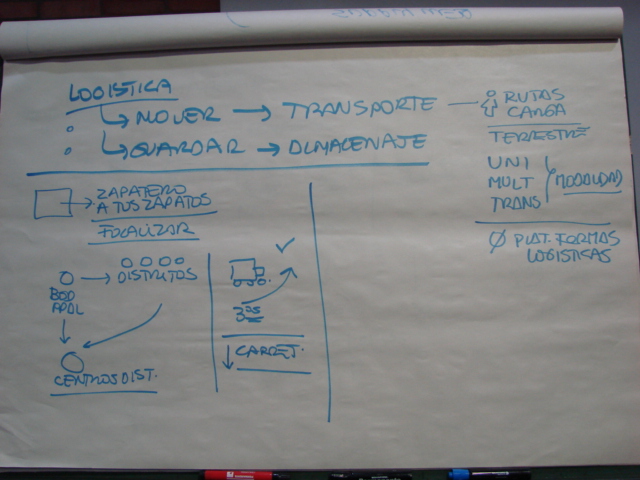 LOGISTICA
MOVER → TRANSPORTE
GUARDAR → ALMACENAJE
RUTAS
CARGA
TERRESTRE
UNI
MULT
TRANS
MODALIDAD
Ø PLATAFORMAS
LOGISTICAS
ZAPATERO
A TUS ZAPATOS
FOCALIZAR
DISTRITOS
BOD
CENTROS DIST.
↓ CARRET.